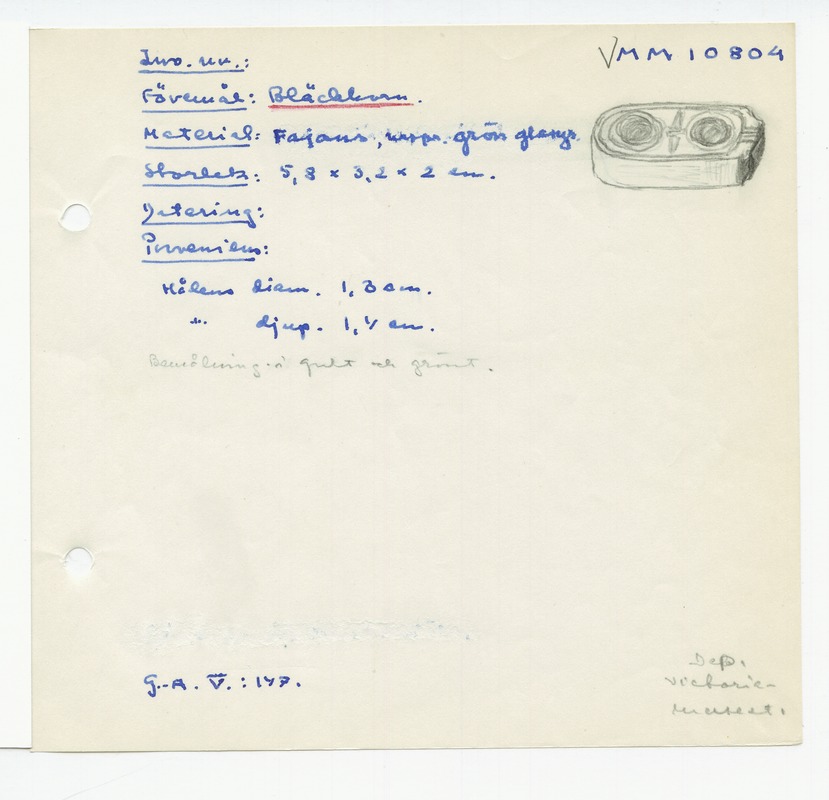 MM 10804
Inv. nr.:
Föremål: Bläckhorn.
Material: Fajans, urspr. grön glasyr.
Storlek: 5,8 x 3,2 x 2 cm.
Datering:
Proveniens:
Hålens diam. 1,3 cm.
" djup. 1,1 cm.
Bemålning i gult och grönt.
G.-A. V.: 147.
Dep.
Victoria-
museet.